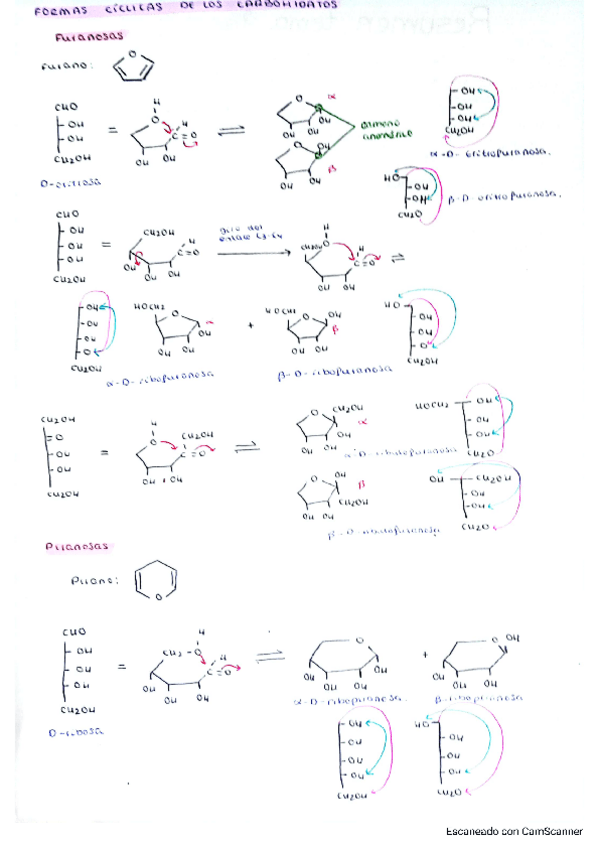 FORMAS CÍCLICAS DE LOS CARBOHIDATOS
Furanosas
Furano:
CHO
OH
OH
CH2OH
D-eritrosa
=
H
O
H
C=O
OH OH
O
α
OH
OH OH
O
OH
β
OH OH
carbono
anomérico
OH
OH
OH
CH2OH
α-D-eritrofuranosa.
HO
OH
OH
CH2O
β-D-eritrofuranosa.
CHO
OH
OH
OH
CH2OH
=
CH2OH
H
C=O
OH
OH OH
giro del
enlace C3-C4
H
CH2OH
O
H
C=O
OH OH
OH
OH
OH
O
CH2OH
α-D-ribofuranosa
HOCH2
O
α
OH
OH OH
+
HOCH2
O
OH
β
OH OH
β-D-ribofuranosa
HO
OH
OH
O
CH2OH
CH2OH
=O
OH
OH
CH2OH
=
H
O
CH2OH
C=O
OH OH
O
CH2OH
α
OH
OH OH
HOCH2
OH
OH
OH
CH2O
O
OH
β
CH2OH
OH OH
OH
CH2OH
OH
OH
CH2O
Piranosas
Pirano:
O
CHO
OH
OH
OH
CH2OH
D-ribosa
=
H
CH2-O
H
C=O
OH
OH OH
O
OH
OH
OH OH
α-D-ribopiranosa.
+
O
OH
OH
OH OH
β-ribopiranosa
OH
OH
OH
OH
CH2OH
HO
OH
OH
OH
CH2O
Escaneado con CamScanner